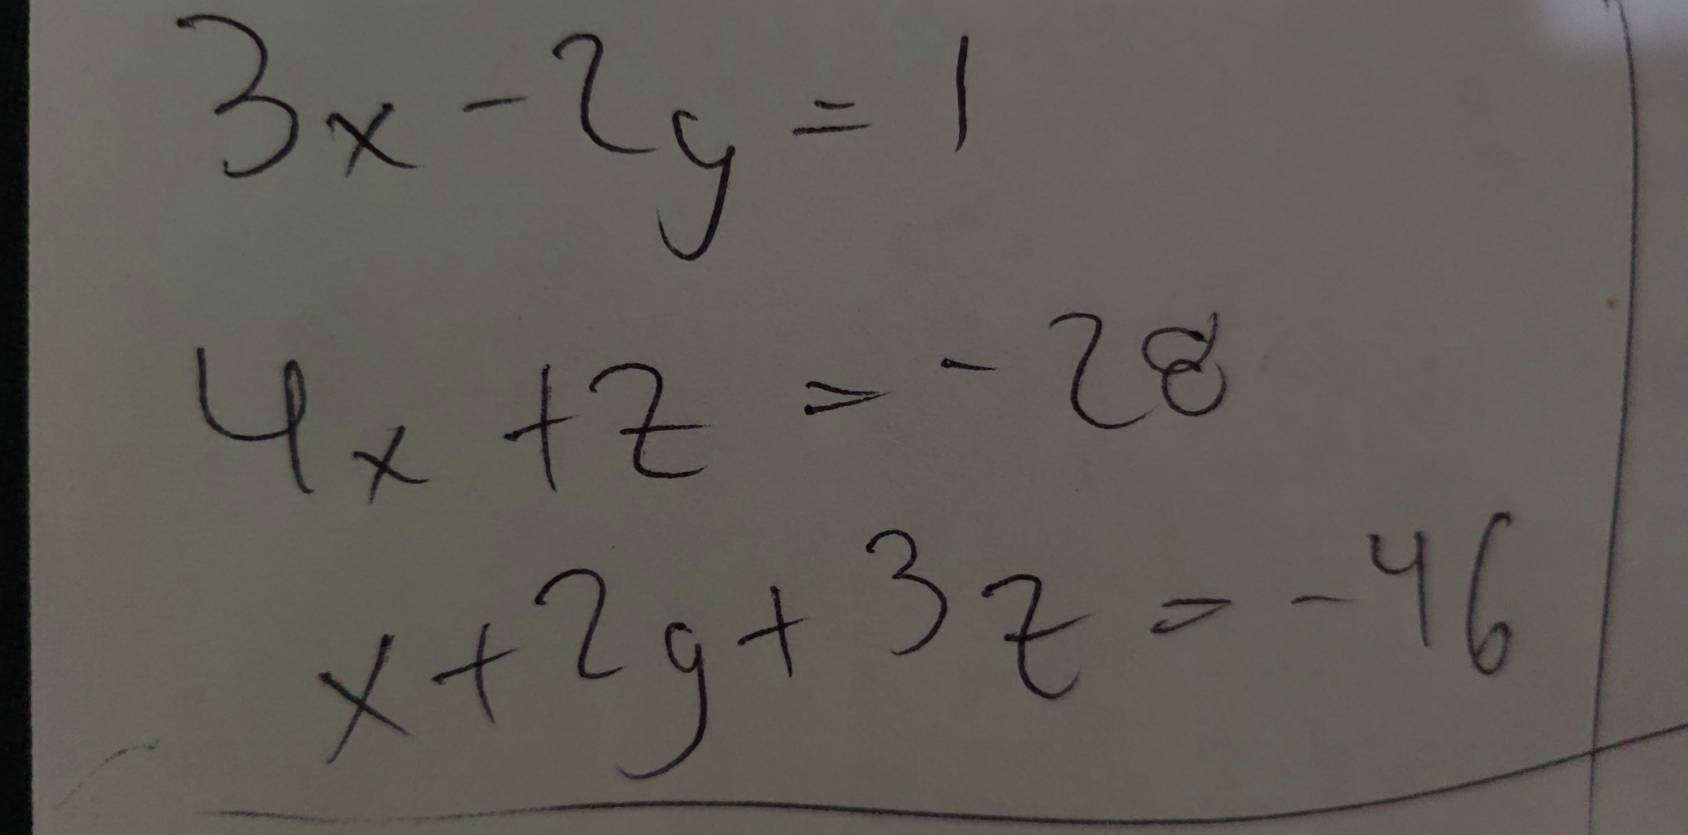 3x - 2y = 1
4x + z = -28
x + 2y + 3z = -46